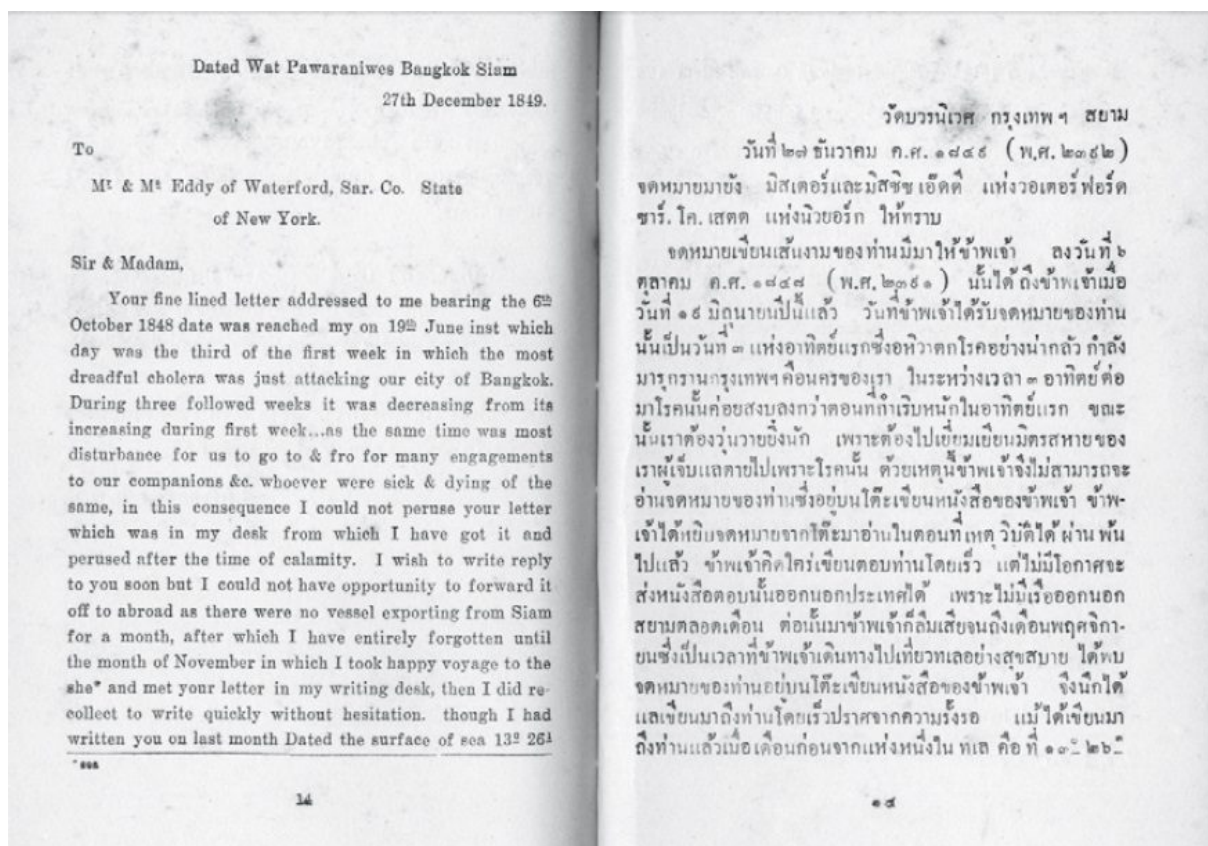 Dated Wat Pawaraniwes Bangkok Siam
27th December 1849.
To
Mr. & Ms. Eddy of Waterford, Sar. Co. State
of New York.
Sir & Madam,
Your fine lined letter addressed to me bearing the 6th
October 1848 date was reached my on 19th June inst which
day was the third of the first week in which the most
dreadful cholera was just attacking our city of Bangkok.
During three followed weeks it was decreasing from its
increasing during first week...as the same time was most
disturbance for us to go to & fro for many engagements
to our companions &c. whoever were sick & dying of the
same, in this consequence I could not peruse your letter
which was in my desk from which I have got it and
perused after the time of calamity. I wish to write reply
to you soon but I could not have opportunity to forward it
off to abroad as there were no vessel exporting from Siam
for a month, after which I have entirely forgotten until
the month of November in which I took happy voyage to the
she* and met your letter in my writing desk, then I did re-
collect to write quickly without hesitation. though I had
written you on last month Dated the surface of sea 13º 26
* sea
14
วัดบวรนิเวศ กรุงเทพ ฯ สยาม
วันที่ ๒๗ ธันวาคม ค.ศ. ๑๘๔๙ (พ.ศ. ๒๓๙๒)
จดหมายมายัง มิสเตอร์และมิสซิซ เอ๊ดดี แห่งวอเตอร์ฟอร์ด
ซาร์. โค. เสตต แห่งนิวยอร์ก ให้ทราบ
จดหมายเขียนเส้นงามของท่านมีมาให้ข้าพเจ้า ลงวันที่ ๖
ตุลาคม ค.ศ. ๑๘๔๘ (พ.ศ. ๒๓๙๑) นั้นได้ถึงข้าพเจ้าเมื่อ
วันที่ ๑๙ มิถุนายนปีนี้แล้ว วันที่ข้าพเจ้าได้รับจดหมายของท่าน
นั้นเป็นวันที่ ๓ แห่งอาทิตย์แรกซึ่งอหิวาตกโรคอย่างน่ากลัว กำลัง
มารุกรานกรุงเทพฯ คือนครของเรา ในระหว่างเวลา ๓ อาทิตย์ต่อ
มาโรคนั้นค่อยสงบลงกว่าตอนที่กำเริบหนักในอาทิตย์แรก ขณะ
นั้นเราต้องวุ่นวายยิ่งนัก เพราะต้องไปเยี่ยมเยียนมิตรสหายของ
เราผู้เจ็บแลตายไปเพราะโรคนั้น ด้วยเหตุนี้ข้าพเจ้าจึงไม่สามารถจะ
อ่านจดหมายของท่านซึ่งอยู่บนโต๊ะเขียนหนังสือของข้าพเจ้า ข้าพ-
เจ้าได้หยิบจดหมายจากโต๊ะมาอ่านในตอนที่เหตุวิบัติได้ผ่านพ้น
ไปแล้ว ข้าพเจ้าคิดใคร่เขียนตอบท่านโดยเร็ว แต่ไม่มีโอกาสจะ
ส่งหนังสือตอบนั้นออกนอกประเทศได้ เพราะไม่มีเรือออกนอก
สยามตลอดเดือน ต่อนั้นมาข้าพเจ้าก็ลืมเสียจนถึงเดือนพฤศจิกา-
ยนซึ่งเป็นเวลาที่ข้าพเจ้าเดินทางไปเที่ยวทเลอย่างสุขสบาย ได้พบ
จดหมายของท่านอยู่บนโต๊ะเขียนหนังสือของข้าพเจ้า จึงนึกได้
แลเขียนมาถึงท่านโดยเร็วปราศจากความรั้งรอ แม้ได้เขียนมา
ถึงท่านแล้วเมื่อเดือนก่อนจากแห่งหนึ่งใน ทเล คือ ที่ ๑๓ ๒๖
๑๕